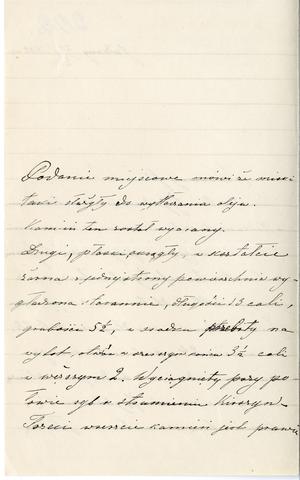 Podanie miejscowe mówi że miał
takie służyły do wytłaczania oleju.
Kamień ten został wyorany.
Drugi, płaski okrągły, w kształcie
żarna z jednej strony powierzchnia wy-
gładzona starannie, długości 13 cali,
grubości 5½, w środku przebity na
wylot, otwór w szerszym końcu 3½ cali
w węższym 2. Wyciągnięty przy po-
łowie ryb w strumieniu
Trzeci wreszcie kamień jest prawie